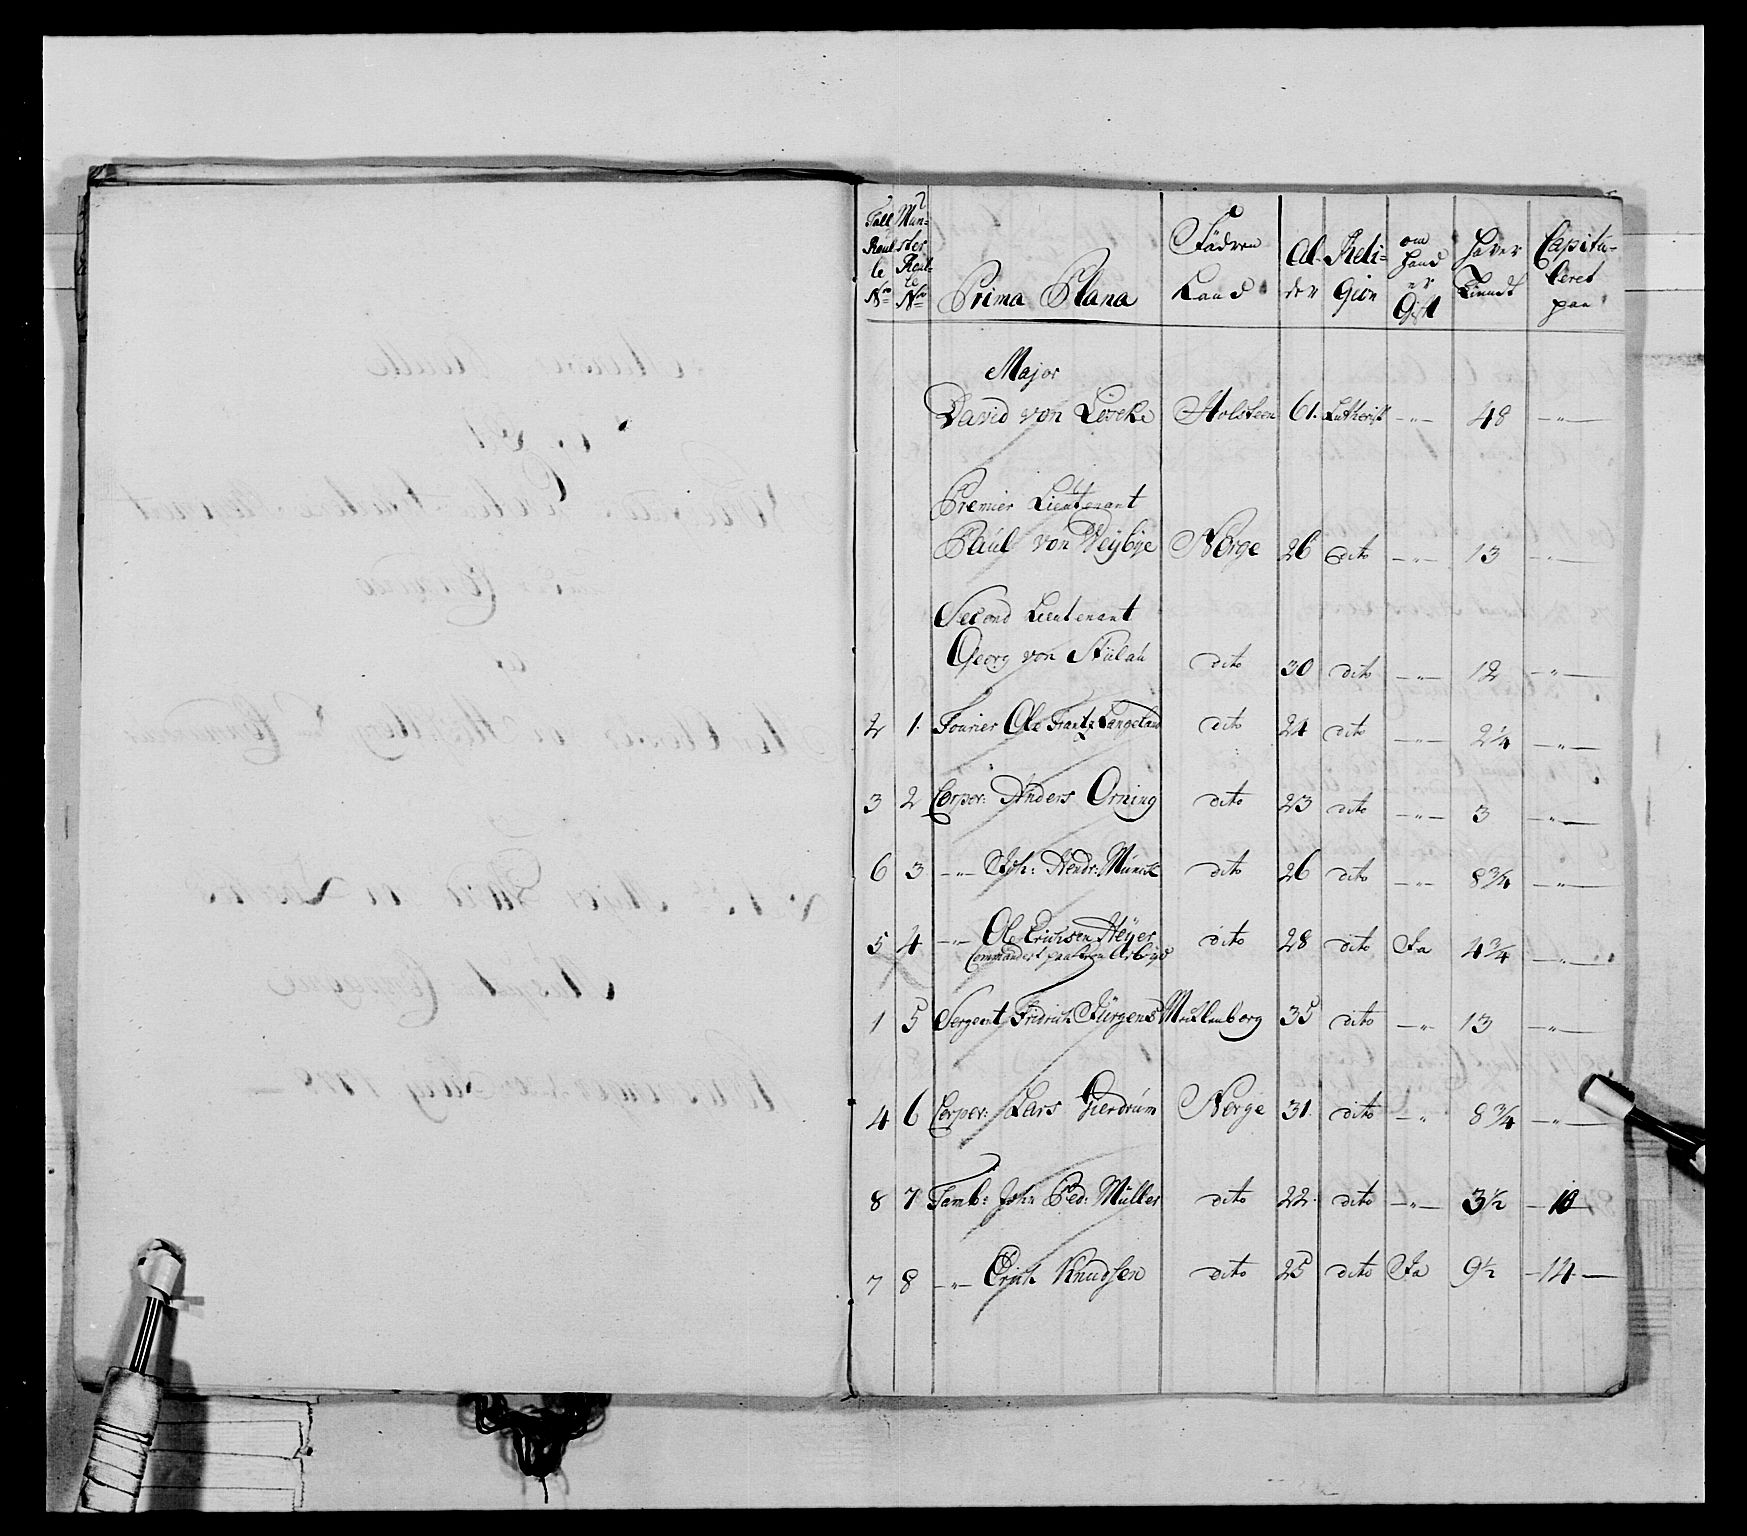 Tall Roulle No | Munster Roulle No | Prima Plana | Födrene Land | Alder | Religion | om hand er Gift | Haver Tient | Capituleret paa
Major
David von Lovche | Holsteen | 61. | Lutherisk | -"- | 48 | -"-
Premier Lieutenant
Paul von Weybye | Norge | 26 | dito | -"- | 13 | -"-
Second Lieutenant
Georg von Stülau | dito | 30 | dito | -"- | 12 | -"-
2 | 1. | Fourier Ole Frantz Langeland | dito | 24 | dito | -"- | 2 1/4 | -"-
3 | 2 | Corper: Anders Orning | dito | 23 | dito | -"- | 3 | -"-
6 | 3 | -"- Joh: Hendr: Münch | dito | 26 | dito | -"- | 8 3/4 | -"-
5 | 4 | -"- Ole Erichsen Heyer | dito | 28 | dito | Ja | 4 3/4 | -"-
Commandert paa
1 | 5 | Sergeant Fridrich Jürgens | Mecklenborg | 35 | dito | -"- | 13 | -"-
4 | 6 | Corper: Lars Gierdrum | Norge | 31. | dito | -"- | 8 3/4 | -"-
8 | 7 | Tamb: John Ped: Müller | dito | 22. | dito | -"- | 3 1/2 | 10
7 | 8 | -"- Erich Knudsen | dito | 25 | dito | Ja | 9 1/2 | 14